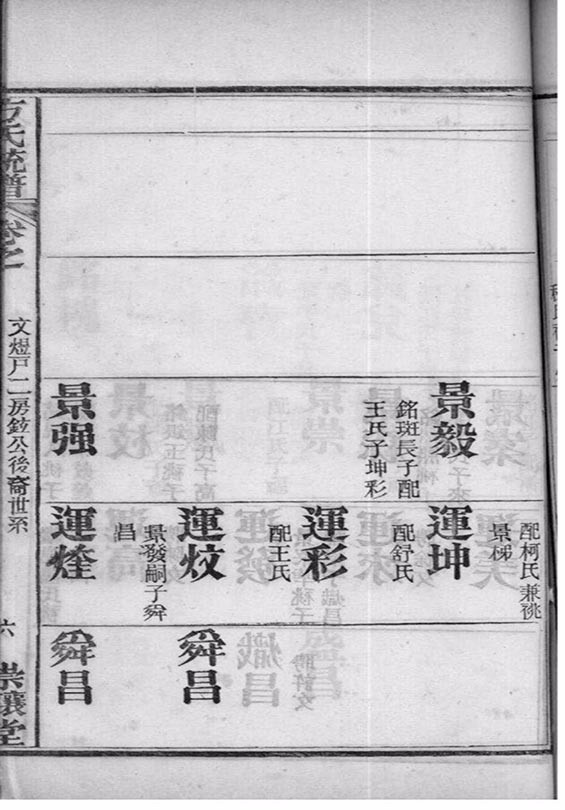 景毅
銘斑長子配
王氏子坤彩
景强
配柯氏兼祧
景梯
運坤
配舒氏
運彩
配王氏
運炆
景發嗣子舜
昌
運
舜昌
舜昌
方氏統譜
卷之
文煜戶二房公後裔世系
六
崇讓堂